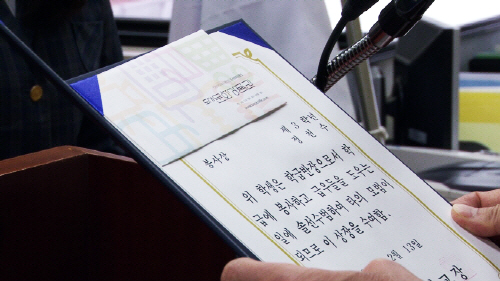 봉사상
제 3 학년
위 학생은 학급반장으로서 학
급에 봉사하고 급우들을 도우는
일에 솔선수범하여 타의 모범이
되므로 이 상장을 수여함.
2월 13일
교장